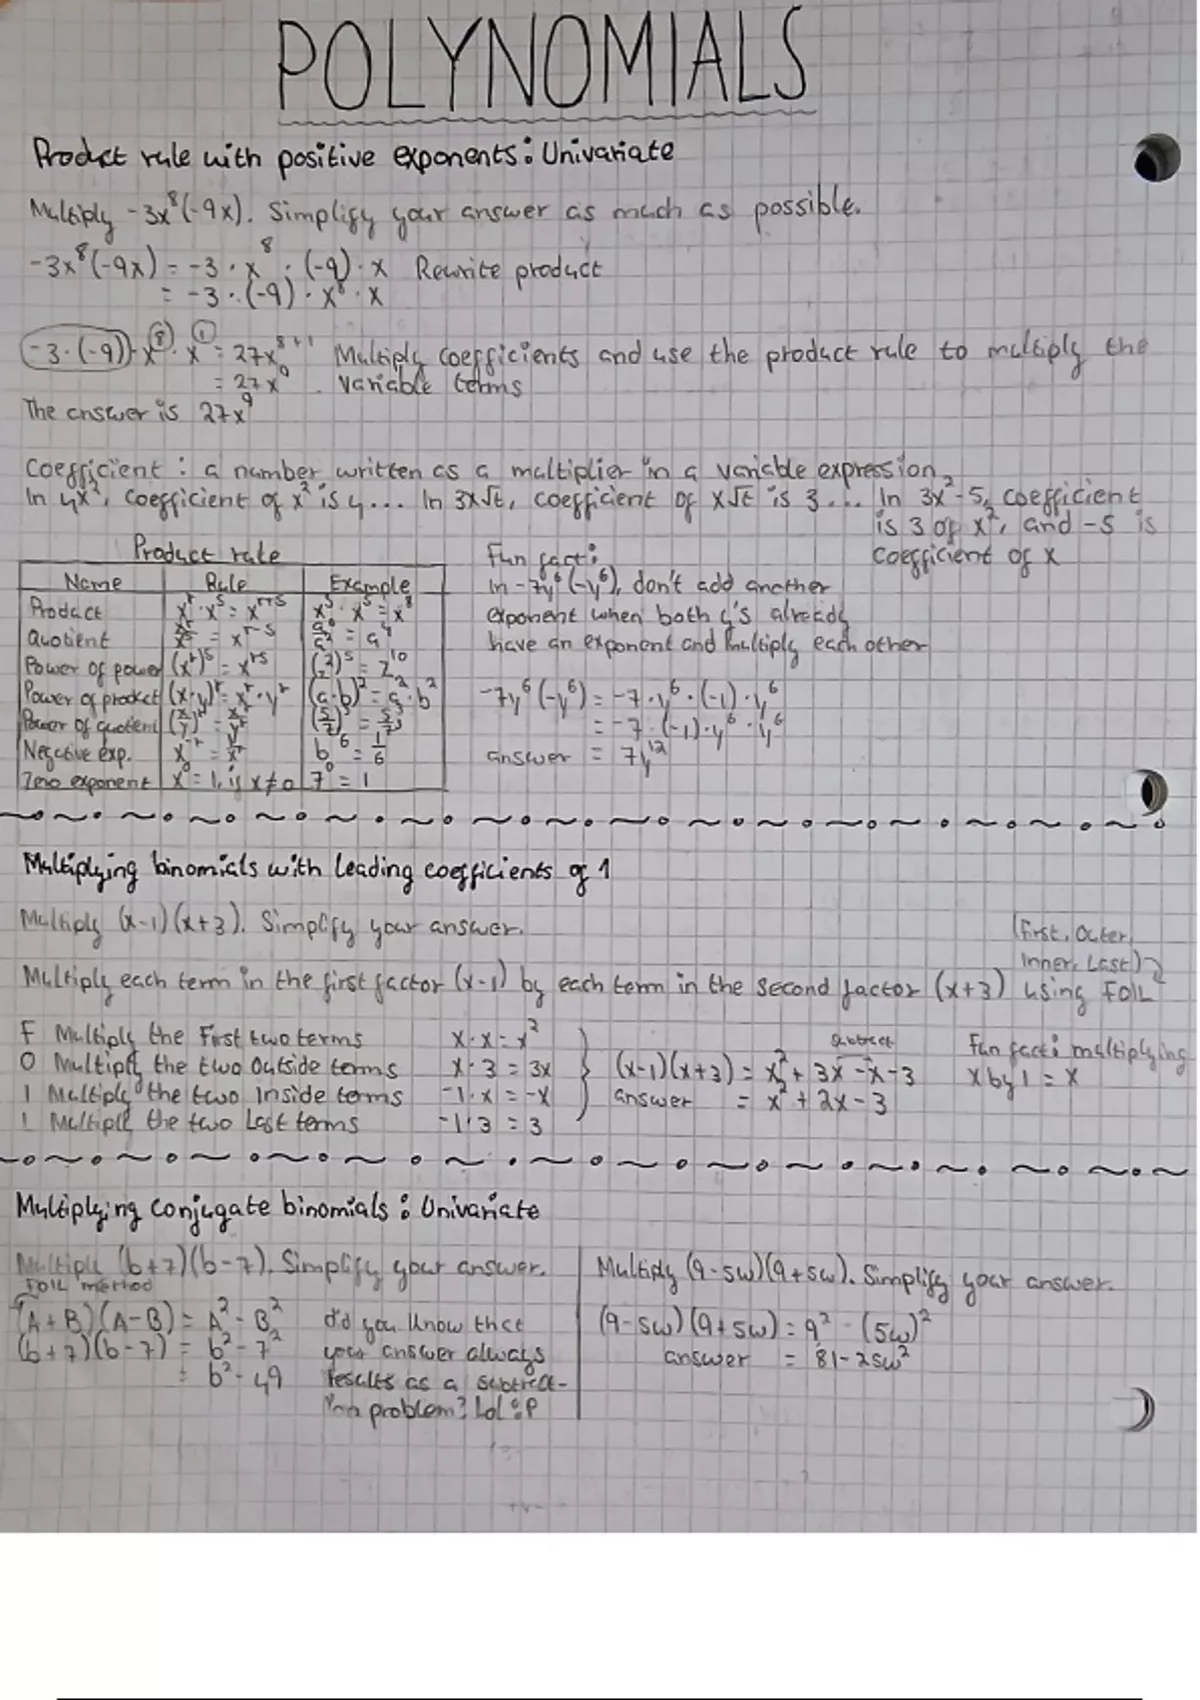 POLYNOMIALS
Product rule with positive exponents: Univariate
Multiply -3x⁸(-9x). Simplify your answer as much as possible.
-3x⁸(-9x) = -3 · x⁸ · (-9) · x Rewrite product
= -3 · (-9) · x⁸ · x
-3 · (-9) · x⁸ · x¹ = 27x⁸⁺¹ Multiply coefficients and use the product rule to multiply the
= 27x⁹ . variable terms
The answer is 27x⁹
Coefficient : a number written as a multiplier in a variable expression.
In 4x², coefficient of x² is 4... In 3x√t, coefficient of x√t is 3... In 3x²-5, coefficient
is 3 of x², and -5 is
coefficient of x
Product rule
Name Rule Example
Product xʳ · xˢ = xʳ⁺ˢ x³ · x⁵ = x⁸
Quotient xʳ/xˢ = xʳ⁻ˢ a⁶/a² = a⁴
Power of power (xʳ)ˢ = xʳˢ (z²)⁵ = z¹⁰
Power of product (x·y)ʳ = xʳ·yʳ (a·b)² = a²·b²
Power of quotient (x/y)ʳ = xʳ/yʳ
Negative exp. x⁻ʳ = 1/xʳ
Zero exponent x⁰ = 1, if x≠0 7⁰ = 1
Fun fact:
In -7y⁶(-y⁶), don't add another
exponent when both y's already
have an exponent and multiply each other
-7y⁶(-y⁶) = -7·y⁶·(-1)·y⁶
= -7·(-1)·y⁶·y⁶
answer = 7y¹²
Multiplying binomials with leading coefficients of 1
Multiply (x-1)(x+3). Simplify your answer.
(First, Outer,
Inner, Last)
Multiply each term in the first factor (x-1) by each term in the second factor (x+3) using FOIL
F Multiply the First two terms x·x = x²
O Multiply the two Outside terms x·3 = 3x
I Multiply the two Inside terms -1·x = -x
L Multiply the two Last terms -1·3 = 3
subtract
(x-1)(x+3) = x² + 3x - x - 3
answer = x² + 2x - 3
Fun fact: multiplying
x by 1 = x
Multiplying conjugate binomials: Univariate
Multiply (b+7)(b-7). Simplify your answer.
FOIL method
(A+B)(A-B) = A² - B²
(b+7)(b-7) = b² - 7²
= b² - 49
did you know that
your answer always
results as a subtract-
ion problem? Lol :P
Multiply (9-5w)(9+5w). Simplify your answer.
(9-5w)(9+5w) = 9² - (5w)²
answer = 81-25w²